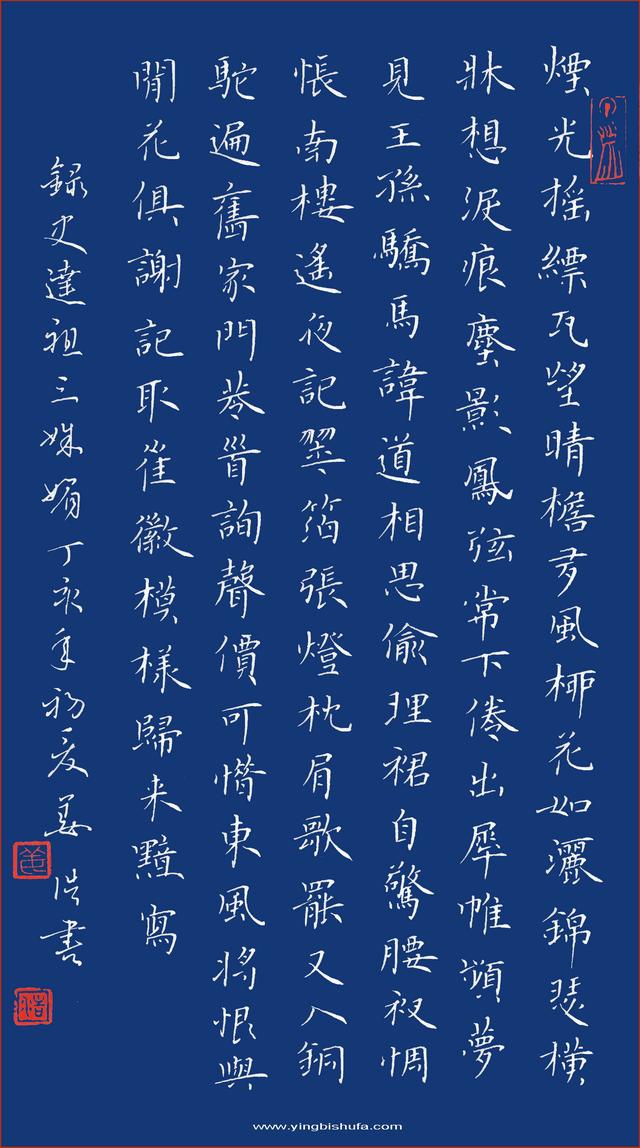 煙光摇縹瓦望晴檐多風柳花如灑錦瑟横
牀想淚痕塵影鳳弦常下倦出犀帷頻夢
見王孫驕馬諱道相思偷理裙自驚腰衩惆
悵南樓遙夜記翠箔張燈枕肩歌罷又入銅
駝遍舊家門巷首詢聲價可惜東風将恨與
閒花俱謝記取崔徽模樣歸来黯寫
録史達祖三姝媚丁亥年初夏姜浩書
www.yingbishufa.com